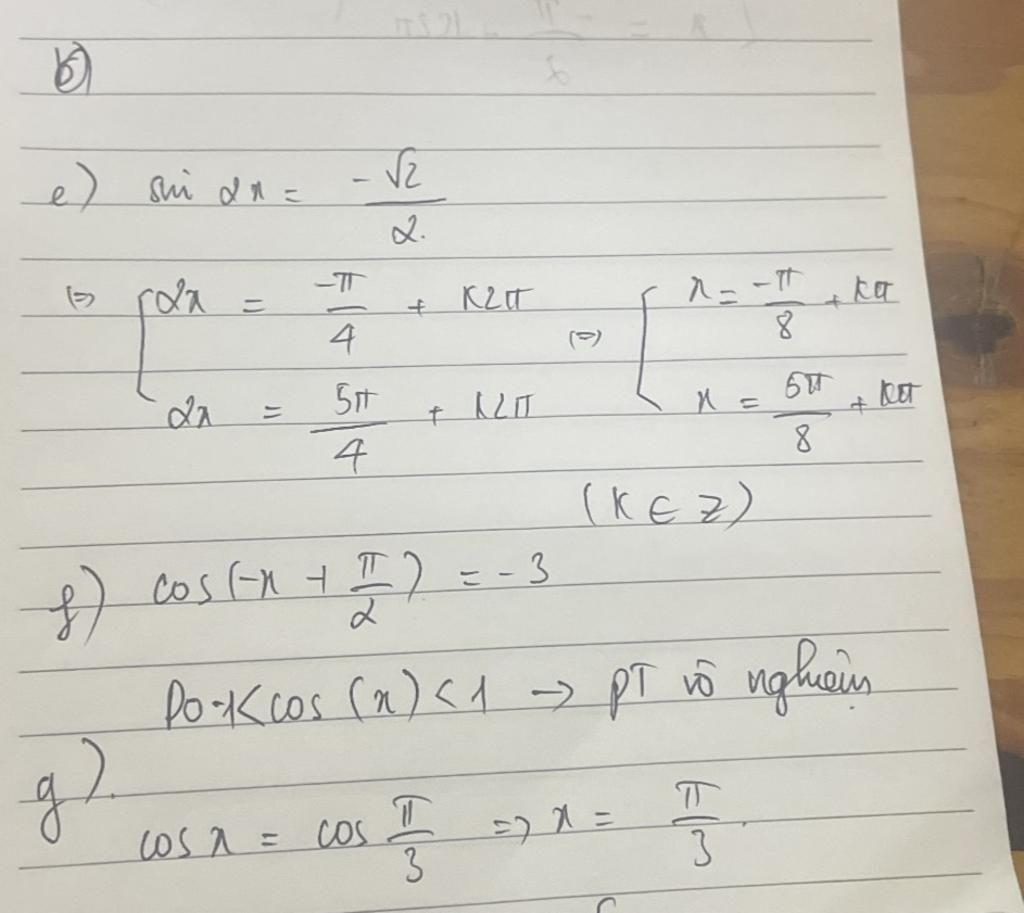 b)
e) sin 2x = -√2/2.
(=) [ 2x = -π/4 + k2π (=) [ x = -π/8 + kπ
2x = 5π/4 + k2π x = 5π/8 + kπ
(K ∈ Z)
f) cos(-x + π/2) = -3
Do -1< cos (x) < 1 → PT vô nghiệm
g).
cos x = cos π/3 => x = π/3.